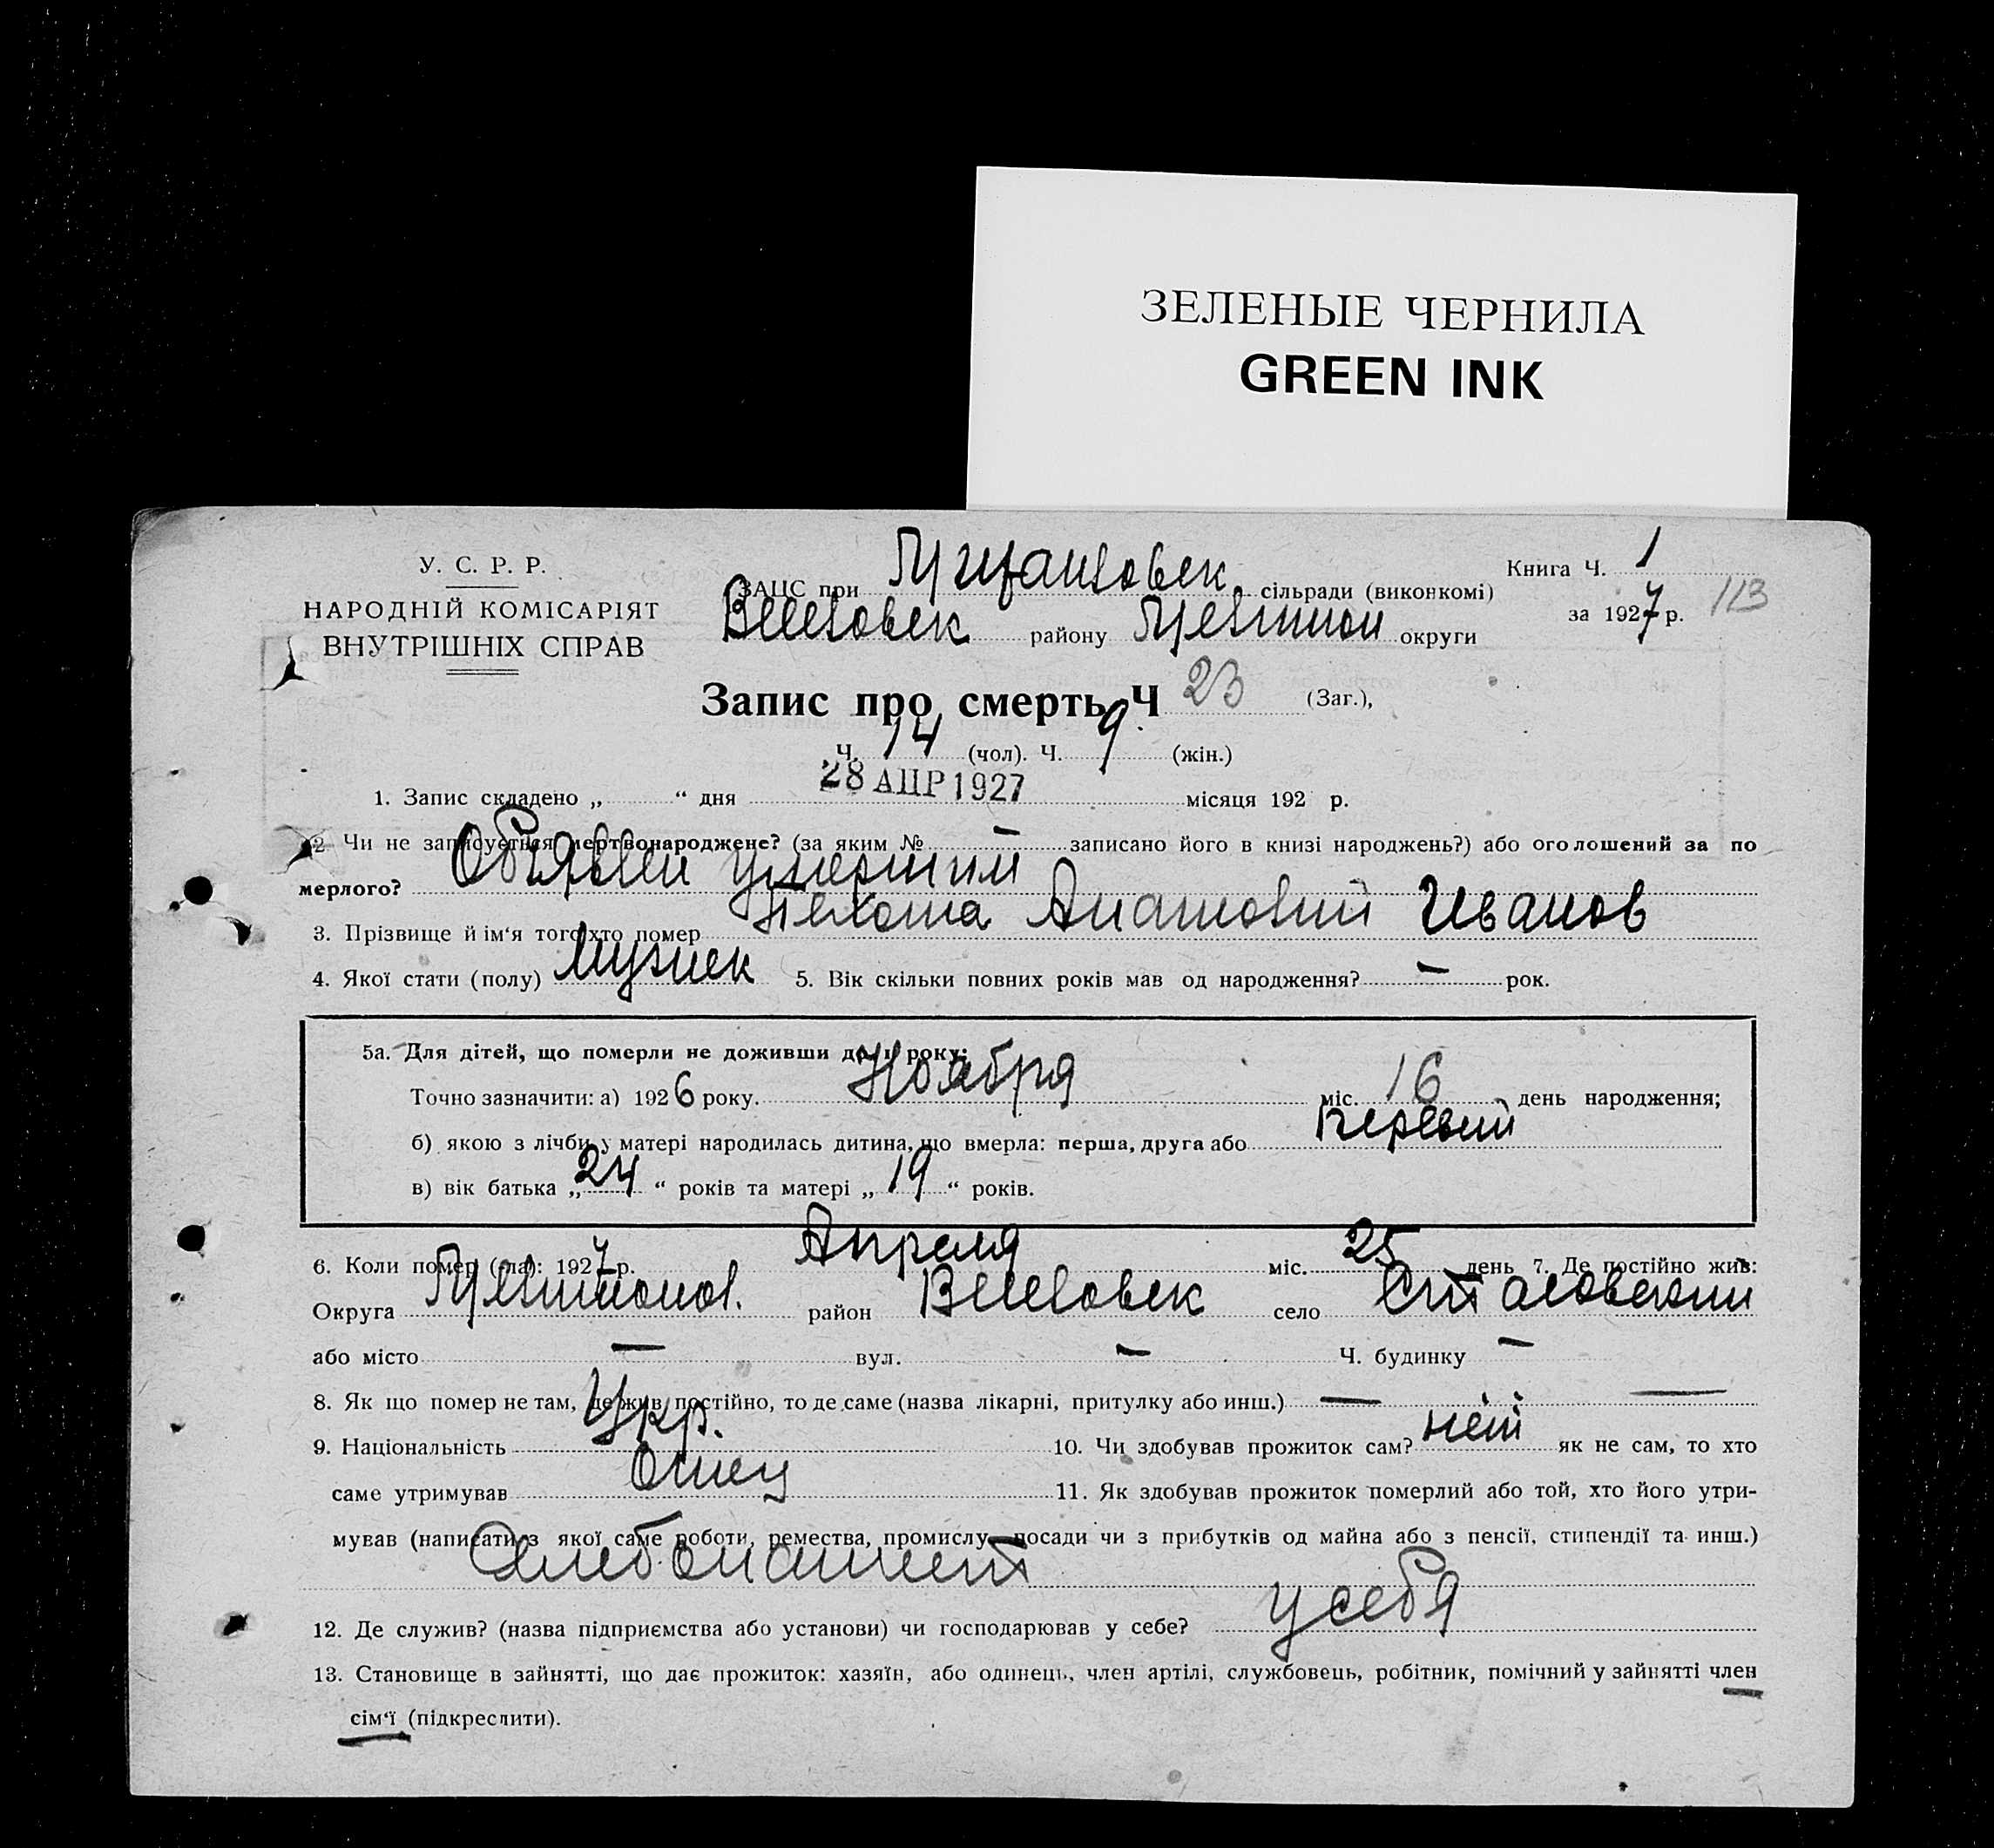 ЗЕЛЕНЫЕ ЧЕРНИЛА
GREEN INK
У. С. Р. Р.
НАРОДНІЙ КОМІСАРІЯТ
ВНУТРІШНІХ СПРАВ
ЗАЦС при сільради (виконкомі)
району округи
Книга Ч. 1
за 1927 р. 113
Запис про смерть Ч 23 (Заг.),
Ч. 14 (чол). Ч. 9 (жін.)
1. Запис складено „ “ дня 28 АПР 1927 місяця 192 р.
2. Чи не записується мертвонароджене? (за яким № — записано його в книзі народжень?) або оголошений за по
мерлого? Объявлен умершим
3. Прізвище й ім‘я того хто помер Пехота Анатолий Иванов
4. Якої стати (полу) Мужск 5. Вік скільки повних років мав од народження? — рок.
5а. Для дітей, що померли не доживши до 1 року:
Точно зазначити: а) 1926 року. Ноября міс. 16 день народження;
б) якою з лічби у матері народилась дитина, що вмерла: перша, друга або первый
в) вік батька „ 24 “ років та матері „ 19 “ років.
6. Коли помер (ла): 1927 р. Апреля міс. 25 день 7. Де постійно жив:
Округа район село
або місто — вул. — Ч. будинку —
8. Як що помер не там, де жив постійно, то де саме (назва лікарні, притулку або инш.) — —
9. Національність Укр. 10. Чи здобував прожиток сам? нет як не сам, то хто
саме утримував Отец 11. Як здобував прожиток померлий або той, хто його утри-
мував (написати з якої саме роботи, ремества, промислу, посади чи з прибутків од майна або з пенсії, стипендії та инш.)
Хлебопашест
12. Де служив? (назва підприємства або установи) чи господарював у себе? у себя
13. Становище в зайнятті, що дає прожиток: хазяїн, або одинець, член артілі, службовець, робітник, помічний у зайнятті член
сім‘ї (підкреслити).